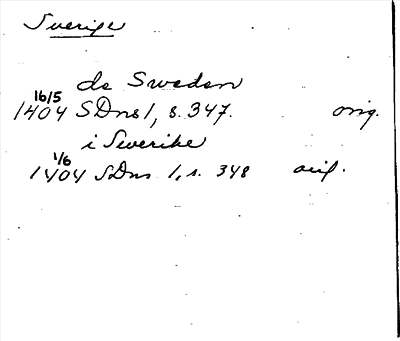 Sverige
de Sweden
16/5
1404 SDns 1, s. 347. orig.
i Swerike
1/6
1404 SDns 1, s. 348 orig.